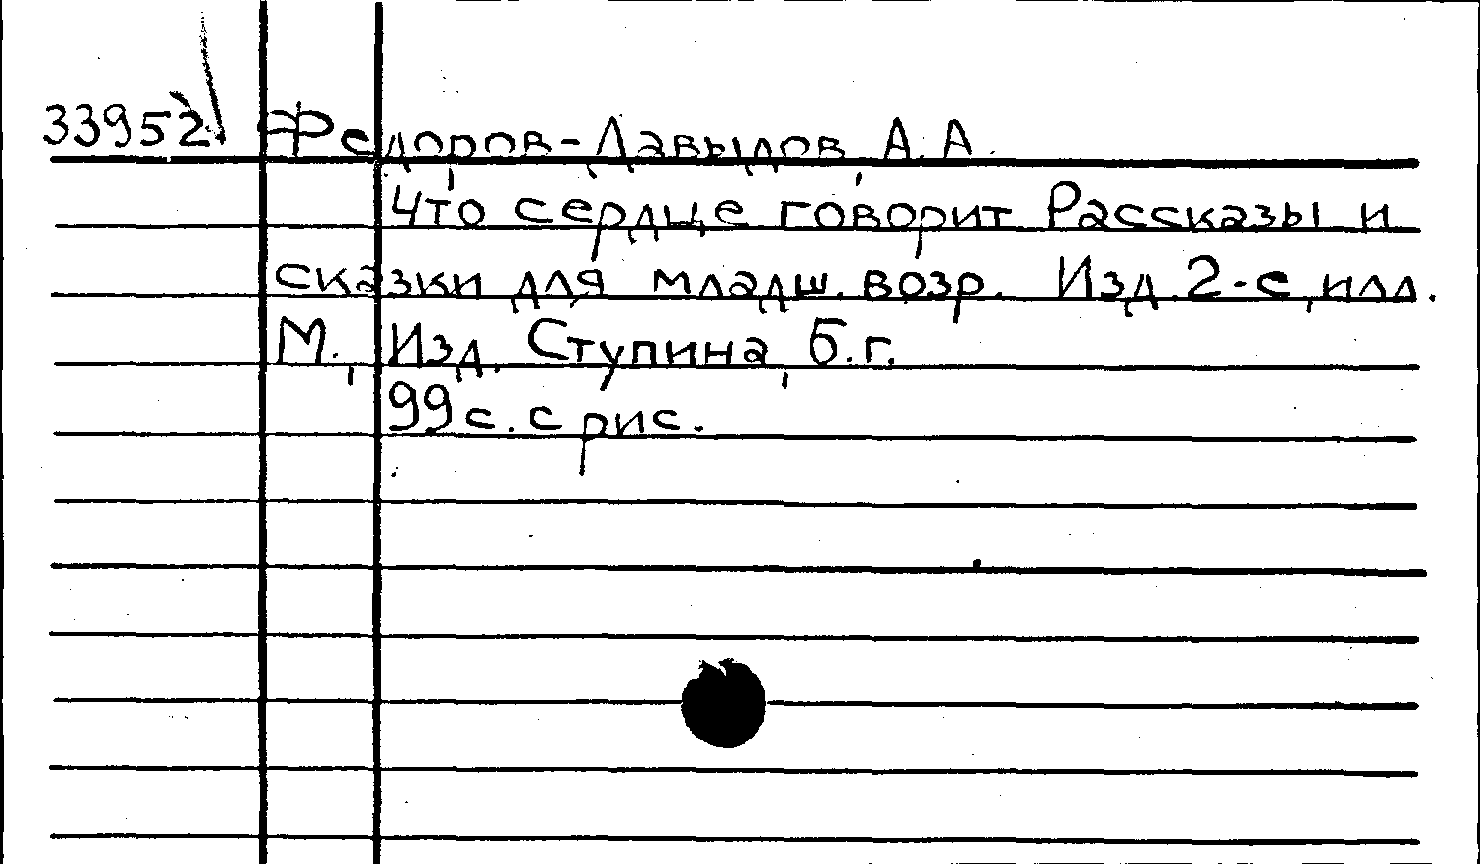 33952 Федоров-Давыдов, А. А.
Что сердце говорит Рассказы и
сказки для младш. возр. Изд. 2-е, илл.
М., Изд. Ступина, б.г.
99 с. с рис.